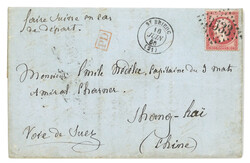 faire Suivre en cas
de départ.
PD
ST BRIEUC
18
JUIN
(21)
Monsieur Emile Capitaine du 3 mats
Amiral Charner.
Shang-haï
Voie de Suez
(Chine)